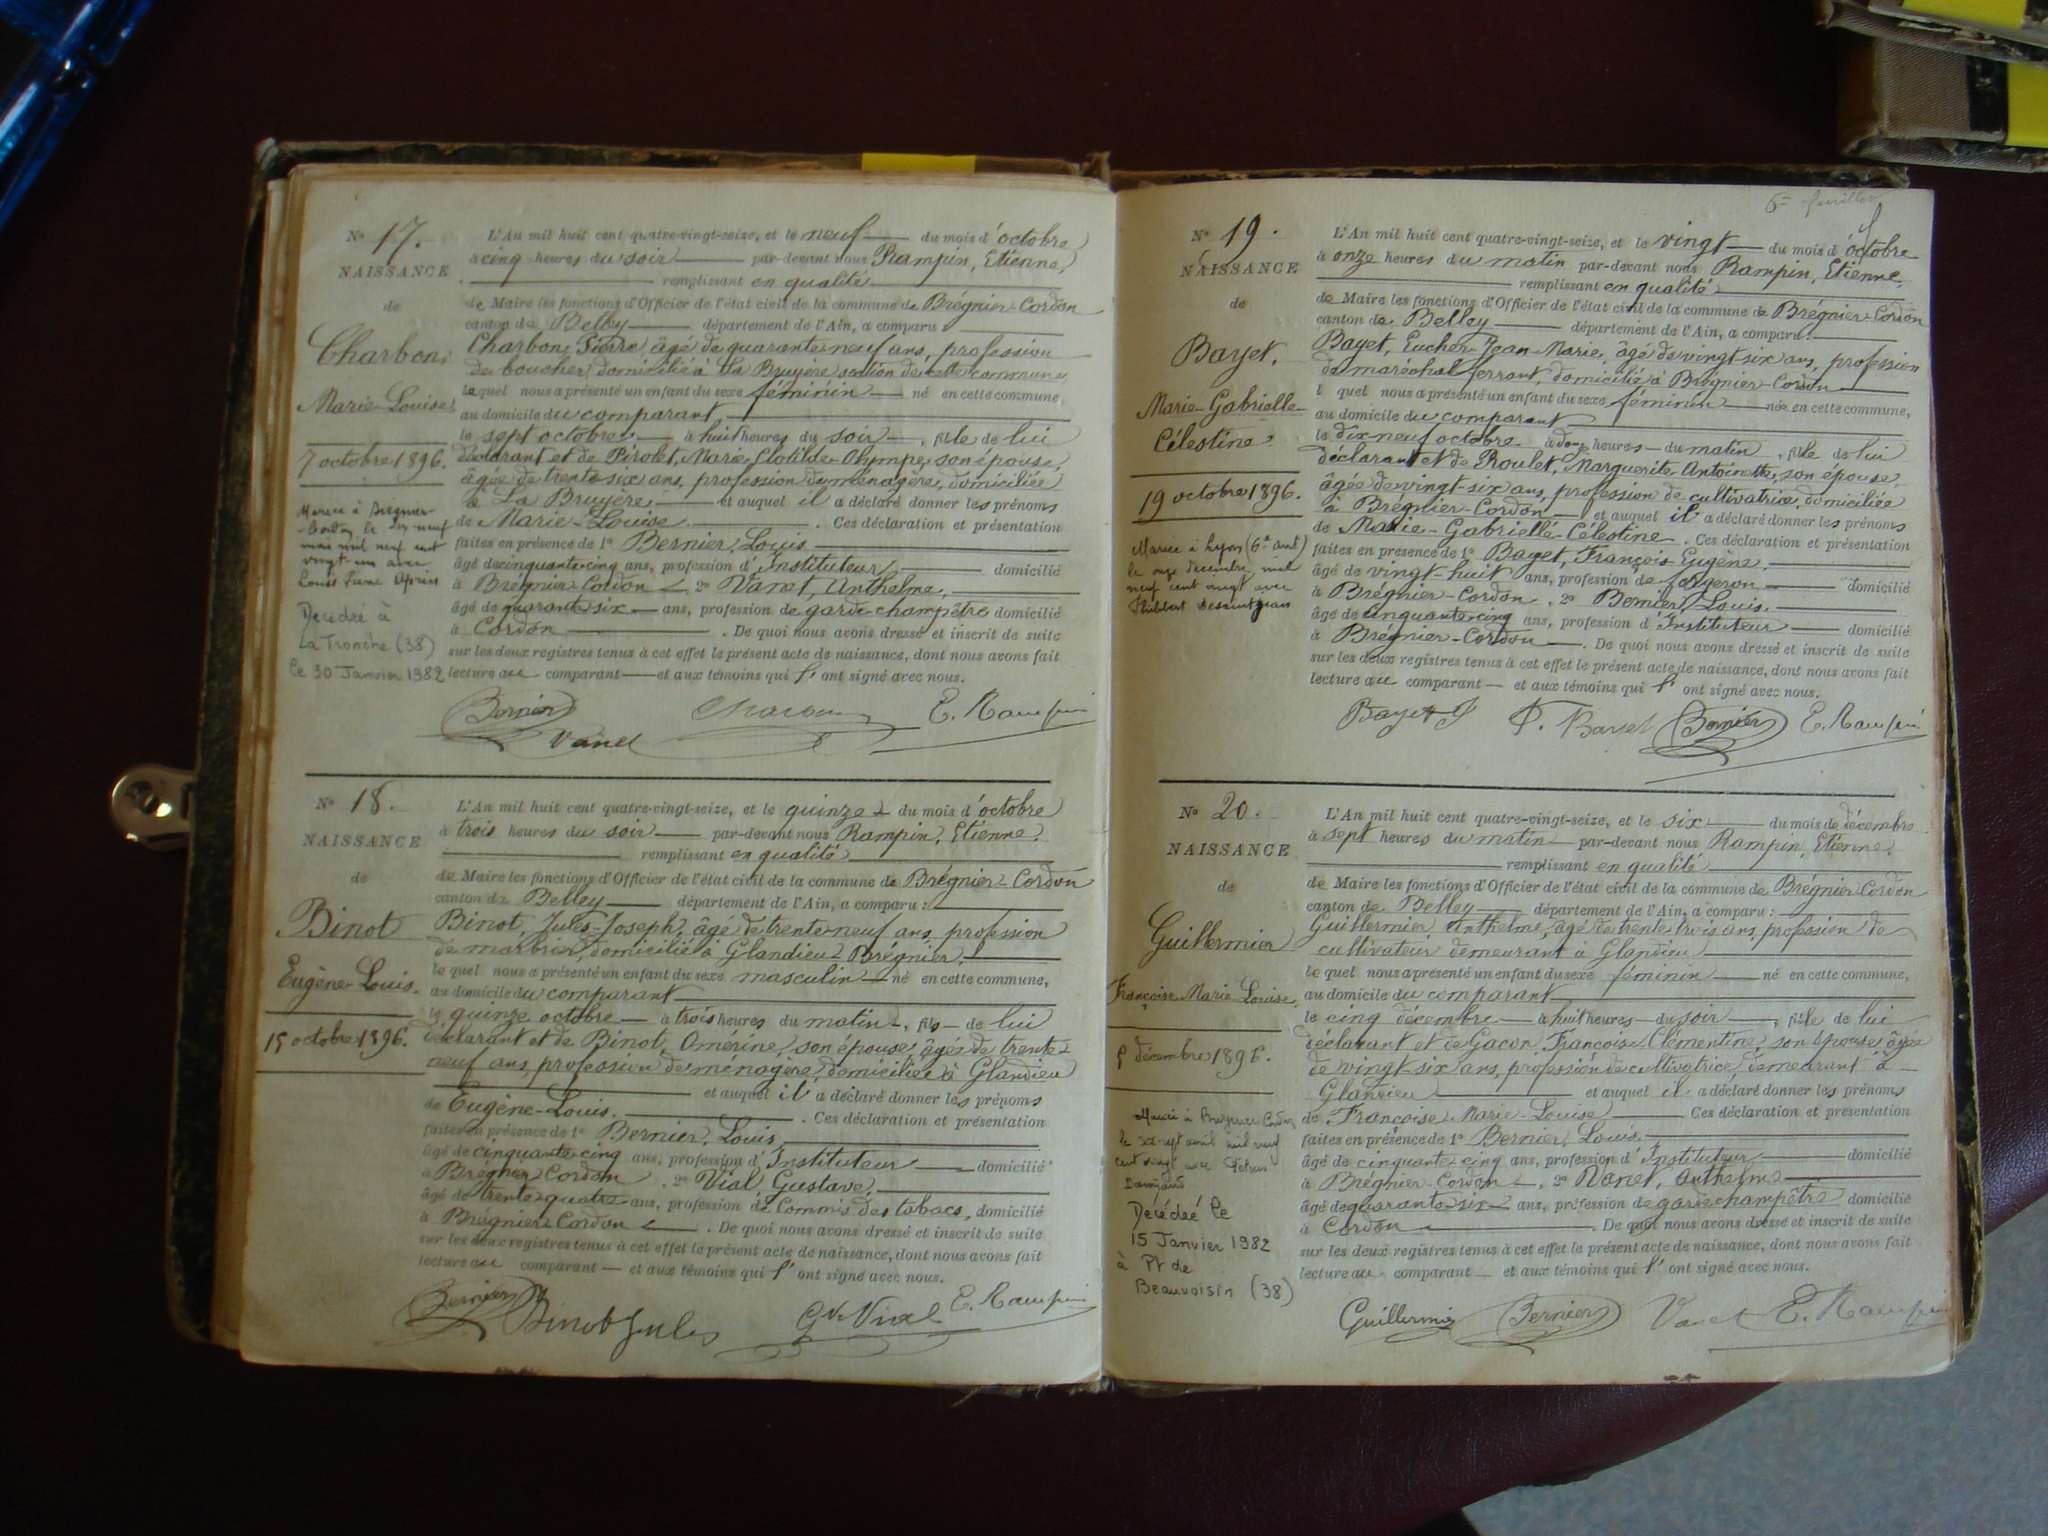 No 17.
NAISSANCE
de
Charbon,
Marie-Louise
7 octobre 1896.
Mariée à Brégnier
-Cordon le dix neuf
mars mil neuf cent
vingt-un avec
Louis
Décédée à
La Tronche (38)
le 30 Janvier 1982
L'An mil huit cent quatre-vingt-seize, et le neuf du mois d'octobre
à cinq heures du soir par-devant nous Rampin, Etienne,
remplissant en qualité
de Maire les fonctions d'Officier de l'état civil de la commune de Brégnier-Cordon
canton de Belley département de l'Ain, a comparu
Charbon, Pierre, âgé de quarante-neuf ans, profession
de boucher, domicilié à La Bruyère section de cette commune,
lequel nous a présenté un enfant du sexe féminin né en cette commune,
au domicile du comparant,
le sept octobre à huit heures du soir, fille de lui
déclarant et de Pirolet, Marie-Clotilde-Olympe, son épouse,
âgée de trente-six ans, profession de ménagère, domiciliée
à La Bruyère et auquel il a déclaré donner les prénoms
de Marie-Louise. Ces déclaration et présentation
faites en présence de 1° Bernier, Louis
âgé de cinquante-cinq ans, profession d'Instituteur, domicilié
à Brégnier-Cordon, 2° Vanet, Anthelme,
âgé de quarante-six ans, profession de garde-champêtre domicilié
à Cordon. De quoi nous avons dressé et inscrit de suite
sur les deux registres tenus à cet effet le présent acte de naissance, dont nous avons fait
lecture au comparant et aux témoins qui l'ont signé avec nous.
Bernier Charbon E. Rampin
Vanet
No 18.
NAISSANCE
de
Binot
Eugène-Louis.
15 octobre 1896.
L'An mil huit cent quatre-vingt-seize, et le quinze du mois d'octobre
à trois heures du soir par-devant nous Rampin, Etienne,
remplissant en qualité
de Maire les fonctions d'Officier de l'état civil de la commune de Brégnier-Cordon
canton de Belley département de l'Ain, a comparu :
Binot, Jules-Joseph, âgé de trente-neuf ans, profession
de marbrier, domicilié à Glandieu-Brégnier,
lequel nous a présenté un enfant du sexe masculin né en cette commune,
au domicile du comparant
le quinze octobre à trois heures du matin, fils de lui
déclarant et de Binot, Omérine, son épouse, âgée de trente-
neuf ans, profession de ménagère, domiciliée à Glandieu
et auquel il a déclaré donner les prénoms
de Eugène-Louis. Ces déclaration et présentation
faites en présence de 1° Bernier, Louis,
âgé de cinquante-cinq ans, profession d'Instituteur domicilié
à Brégnier-Cordon, 2° Vial, Gustave,
âgé de trente-quatre ans, profession de Commis des tabacs, domicilié
à Brégnier-Cordon. De quoi nous avons dressé et inscrit de suite
sur les deux registres tenus à cet effet le présent acte de naissance, dont nous avons fait
lecture au comparant et aux témoins qui l'ont signé avec nous.
Bernier Binot Jules Gve Vial E. Rampin
6e feuillet
No 19.
NAISSANCE
de
Bayet,
Marie-Gabrielle-
Célestine
19 octobre 1896.
Mariée à Lyon (6e arrt)
le onze décembre mil
neuf cent vingt avec
L'An mil huit cent quatre-vingt-seize, et le vingt du mois d'octobre
à onze heures du matin par-devant nous Rampin, Etienne,
remplissant en qualité
de Maire les fonctions d'Officier de l'état civil de la commune de Brégnier-Cordon
canton de Belley département de l'Ain, a comparu :
Bayet, Eucher-Jean-Marie, âgé de vingt-six ans, profession
de maréchal ferrant, domicilié à Brégnier-Cordon
lequel nous a présenté un enfant du sexe féminin née en cette commune,
au domicile du comparant
le dix-neuf octobre à douze heures du matin, fille de lui
déclarant et de Roulet, Marguerite-Antoinette, son épouse,
âgée de vingt-six ans, profession de cultivatrice, domiciliée
à Brégnier-Cordon et auquel il a déclaré donner les prénoms
de Marie-Gabrielle-Célestine. Ces déclaration et présentation
faites en présence de 1° Bayet, François-Eugène,
âgé de vingt-huit ans, profession de forgeron domicilié
à Brégnier-Cordon, 2° Bernier, Louis,
âgé de cinquante-cinq ans, profession d'Instituteur domicilié
à Brégnier-Cordon. De quoi nous avons dressé et inscrit de suite
sur les deux registres tenus à cet effet le présent acte de naissance, dont nous avons fait
lecture au comparant et aux témoins qui l'ont signé avec nous.
Bayet J F. Bayet Bernier E. Rampin
No 20.
NAISSANCE
de
Guillermier
Françoise Marie Louise
5 décembre 1896.
Mariée à Brégnier-Cordon
le avril mil neuf
cent vingt avec
Décédée le
15 Janvier 1982
à Pt de
Beauvoisin (38)
L'An mil huit cent quatre-vingt-seize, et le six du mois de décembre
à sept heures du matin par-devant nous Rampin, Etienne,
remplissant en qualité
de Maire les fonctions d'Officier de l'état civil de la commune de Brégnier-Cordon
canton de Belley département de l'Ain, a comparu :
Guillermier Anthelme, âgé de trente-trois ans, profession de
cultivateur demeurant à Glandieu
lequel nous a présenté un enfant du sexe féminin né en cette commune,
au domicile du comparant
le cinq décembre à huit heures du soir, fille de lui
déclarant et de Gacon, Françoise-Clémentine, son épouse âgée
de vingt-six ans, profession de cultivatrice, demeurant à
Glandieu et auquel il a déclaré donner les prénoms
de Françoise-Marie-Louise Ces déclaration et présentation
faites en présence de 1° Bernier, Louis
âgé de cinquante-cinq ans, profession d'Instituteur domicilié
à Brégnier-Cordon, 2° Vanet, Anthelme
âgé de quarante-six ans, profession de garde-champêtre domicilié
à Cordon. De quoi nous avons dressé et inscrit de suite
sur les deux registres tenus à cet effet le présent acte de naissance, dont nous avons fait
lecture au comparant et aux témoins qui l'ont signé avec nous.
Guillermier Bernier Vanet E. Rampin